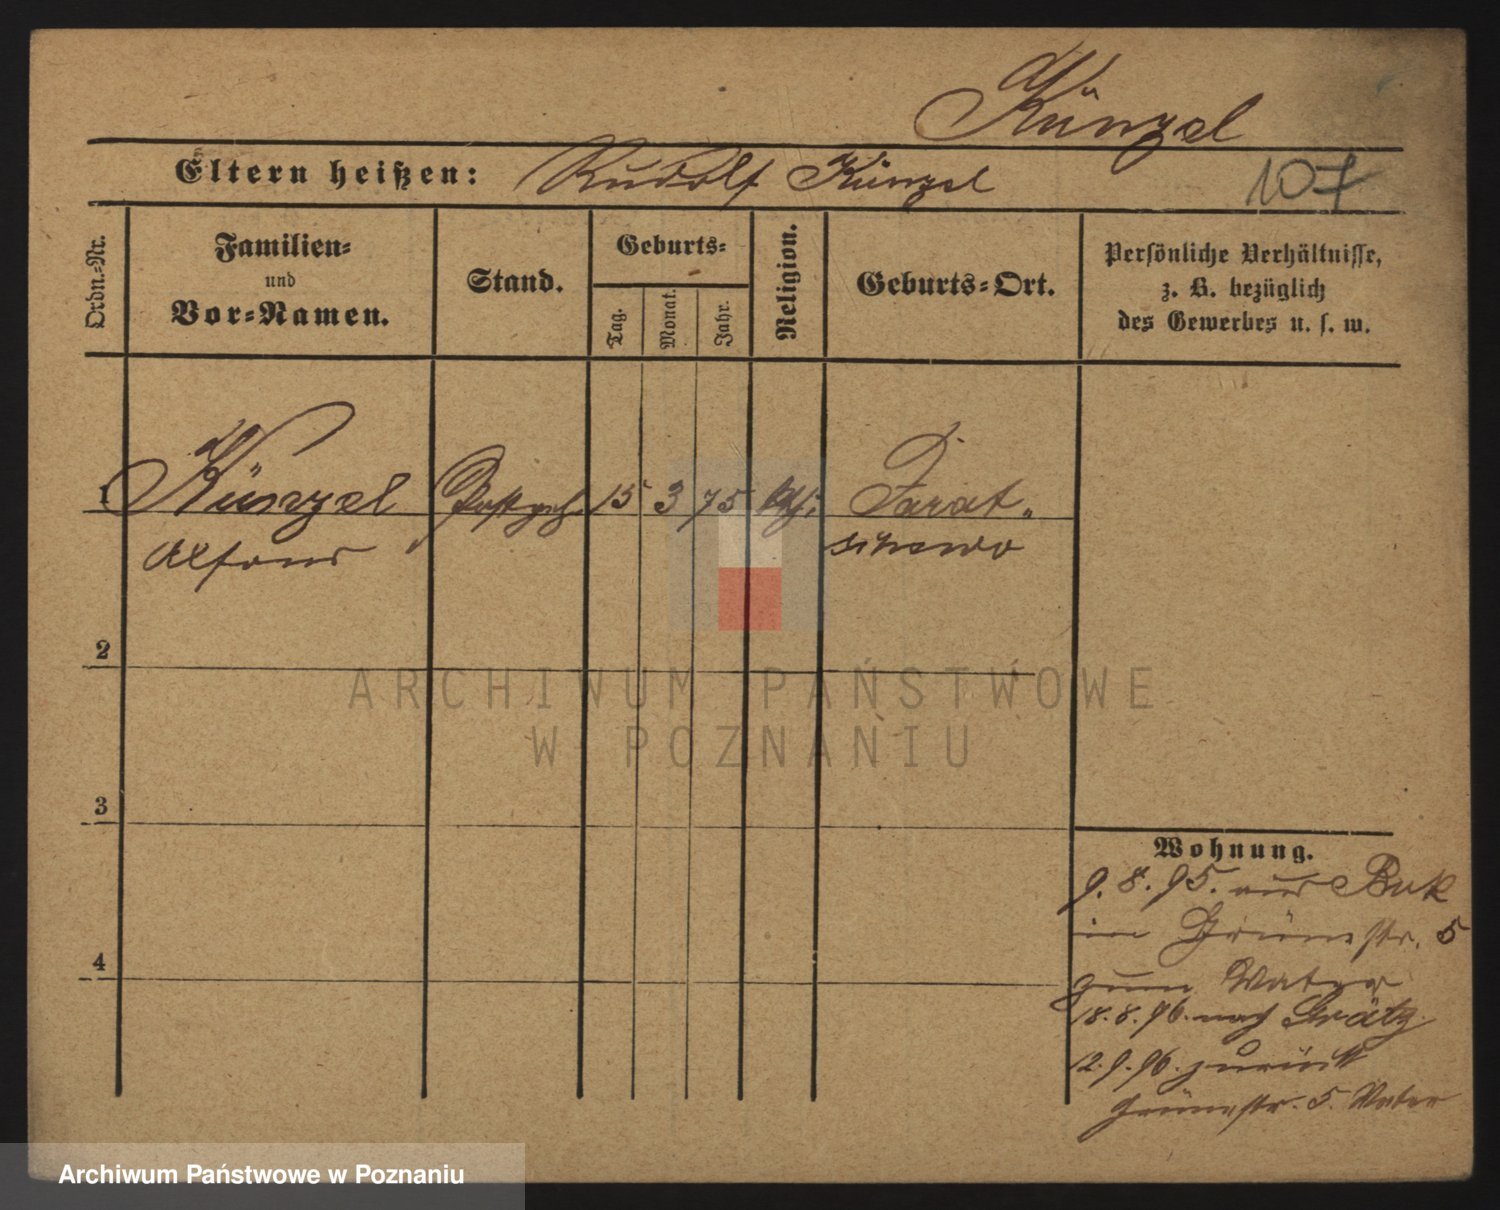 Künzel
Eltern heißen: Rudolf Künzel
107
Ordn.-Nr.
Familien-
und
Vor-Namen.
Stand.
Geburts-
Tag.
Monat.
Jahr.
Religion.
Geburts-Ort.
Persönliche Verhältnisse,
z. B. bezüglich
des Gewerbes u. s. w.
1 Künzel Postgeh. 15 3 75 kth.
Alfons
2
3
4
Wohnung.
9. 8. 95. aus Buk
in Grünestr. 5
zum Vater
18. 8. 96. nach Grätz
12. 9. 96. zurück
Grünestr. 5. Vater
ARCHIWUM PAŃSTWOWE
W POZNANIU
Archiwum Państwowe w Poznaniu